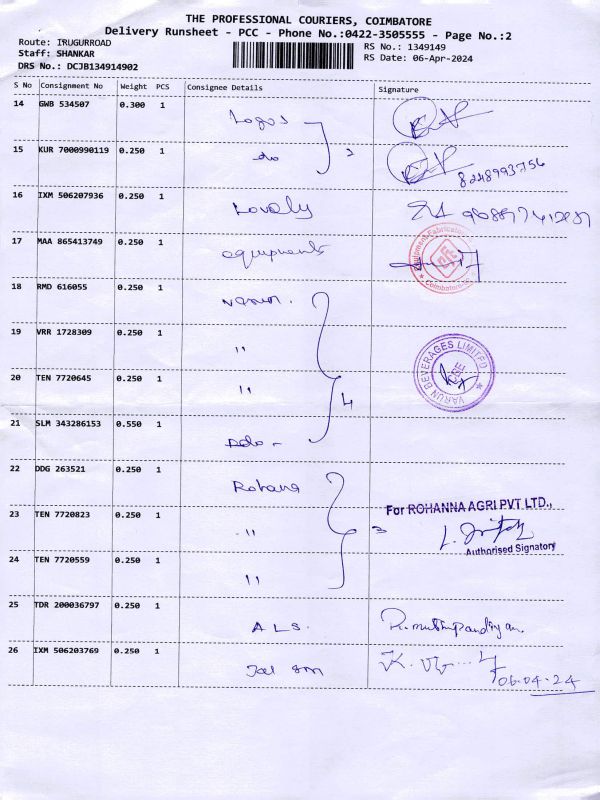 THE PROFESSIONAL COURIERS, COIMBATORE
Delivery Runsheet - PCC - Phone No.:0422-3505555 - Page No.:2
Route: IRUGURROAD
Staff: SHANKAR
DRS No.: DCJB134914902
RS No.: 1349149
RS Date: 06-Apr-2024
S No Consignment No Weight PCS Consignee Details Signature
14 GWB 534507 0.300 1 Logos
15 KUR 7000990119 0.250 1 do 2
8248993756
16 IXM 506207936 0.250 1 Lovely
17 MAA 865413749 0.250 1 equipments
Coimbatore
18 RMD 616055 0.250 1 Varun.
19 VRR 1728309 0.250 1 "
VARUN BEVERAGES LIMITED
20 TEN 7720645 0.250 1 " 4
21 SLM 343286153 0.550 1
22 DDG 263521 0.250 1 Rohana
For ROHANNA AGRI PVT. LTD.,
23 TEN 7720823 0.250 1 " 3
Authorised Signatory
24 TEN 7720559 0.250 1 "
25 TDR 200036797 0.250 1 ALS.
26 IXM 506203769 0.250 1
06.04.24